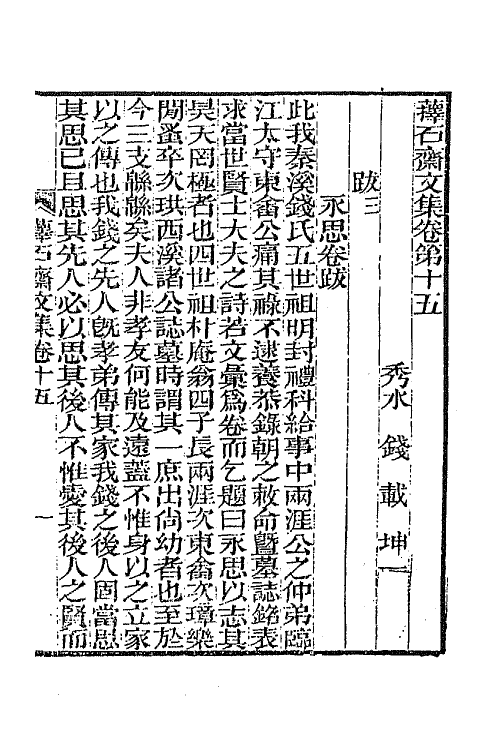 蘀石齋文集卷第十五
秀水 錢載 坤一
跋三
永思卷跋
此我秦溪錢氏五世祖明封禮科給事中兩涯公之仲弟臨
江太守東畬公痛其祿不逮養恭錄朝之敕命暨墓誌銘表
求當世賢士大夫之詩若文彙爲卷而乞題曰永思以志其
昊天罔極者也四世祖朴庵翁四子長兩涯次東畬次璋樂
閒蚤卒次珙西溪諸公誌墓時謂其一庶出尙幼者也至於
今三支緜緜矣夫人非孝友何能及遠蓋不惟身以之立家
以之傳也我錢之先人旣孝弟傳其家我錢之後人固當思
其思已且思其先人必以思其後人不惟愛其後人之賢而
蘀石齋文集卷十五 一